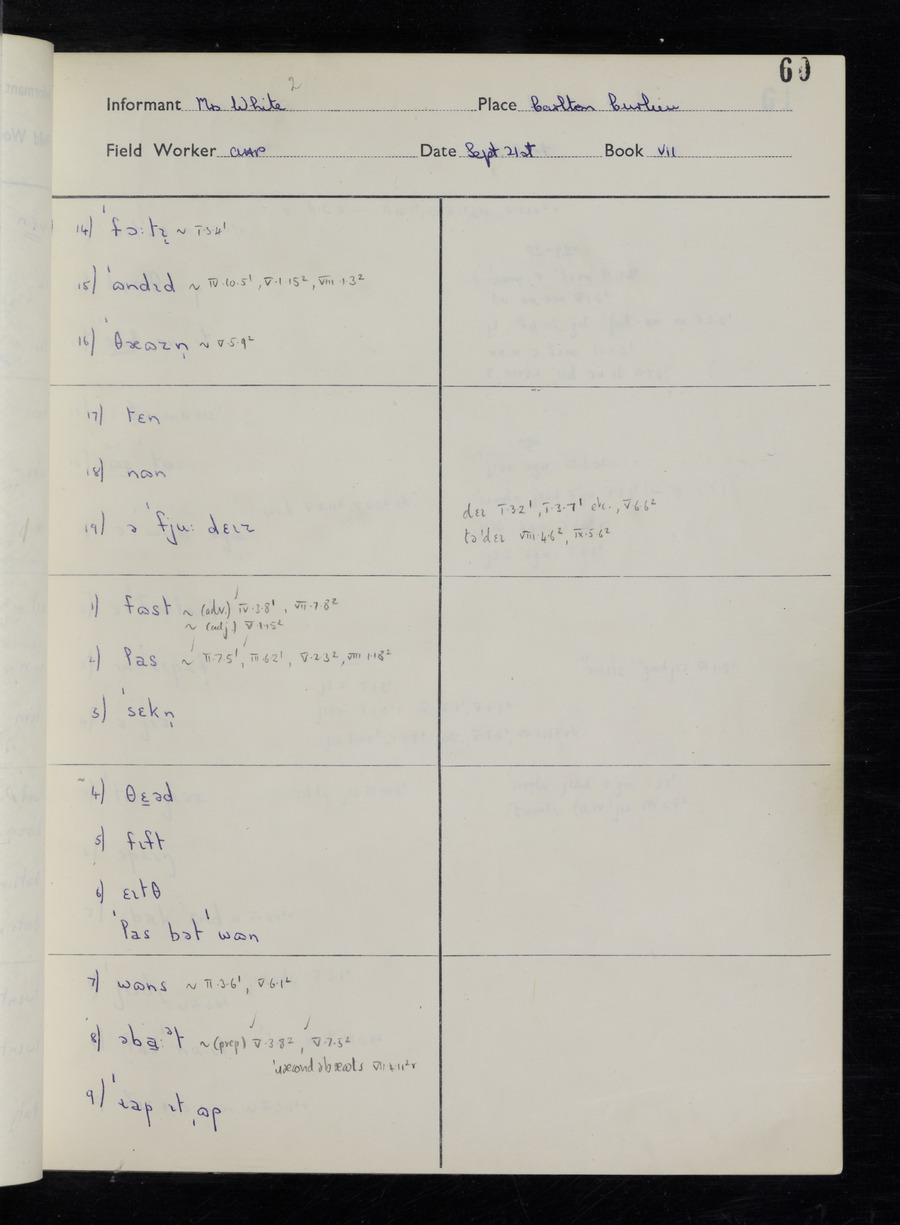 60
2
Informant Mrs White Place Carlton Curlieu
Field Worker Date Sept 21st Book VII
14) ˈfɔːtɪ ~ I·3·4¹
15) ˈɷndɹɪd ~ IV·10·5¹, V·1·15², VIII·1·3²
16) ˈθæɷzn̩ ~ V·5·9²
17) tɛn
18) nɷn
19) ə ˈfjuː dɛɪz
dɛɪ I·3·2¹, I·3·7¹ etc., V·6·6²
təˈdɛɪ VIII·4·6², IX·5·6²
1) fɷst ~ (adv.) IV·3·8¹, VII·7·8²
~ (adj.)
2) las ~ II·7·5¹, III·6·2¹, V·2·3², VIII·1·18²
3) ˈsɛkn̩
4) θɛ̱əd
5) fɪft
6) ɛɪtθ
ˈlas bət ˈwɷn
7) wɷns ~ II·3·6¹, V·6·1²
8) əba̱ːᵊt ~ (prep) V·3·8², V·7·5²
9) ˈɹap ɪt ˌɷp